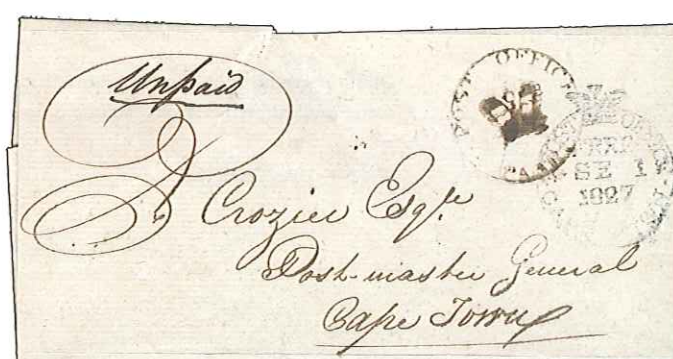 Unpaid
POST OFFICE
FREE
SE 1
1827
Crozier Esqre
Post-master General
Cape Town